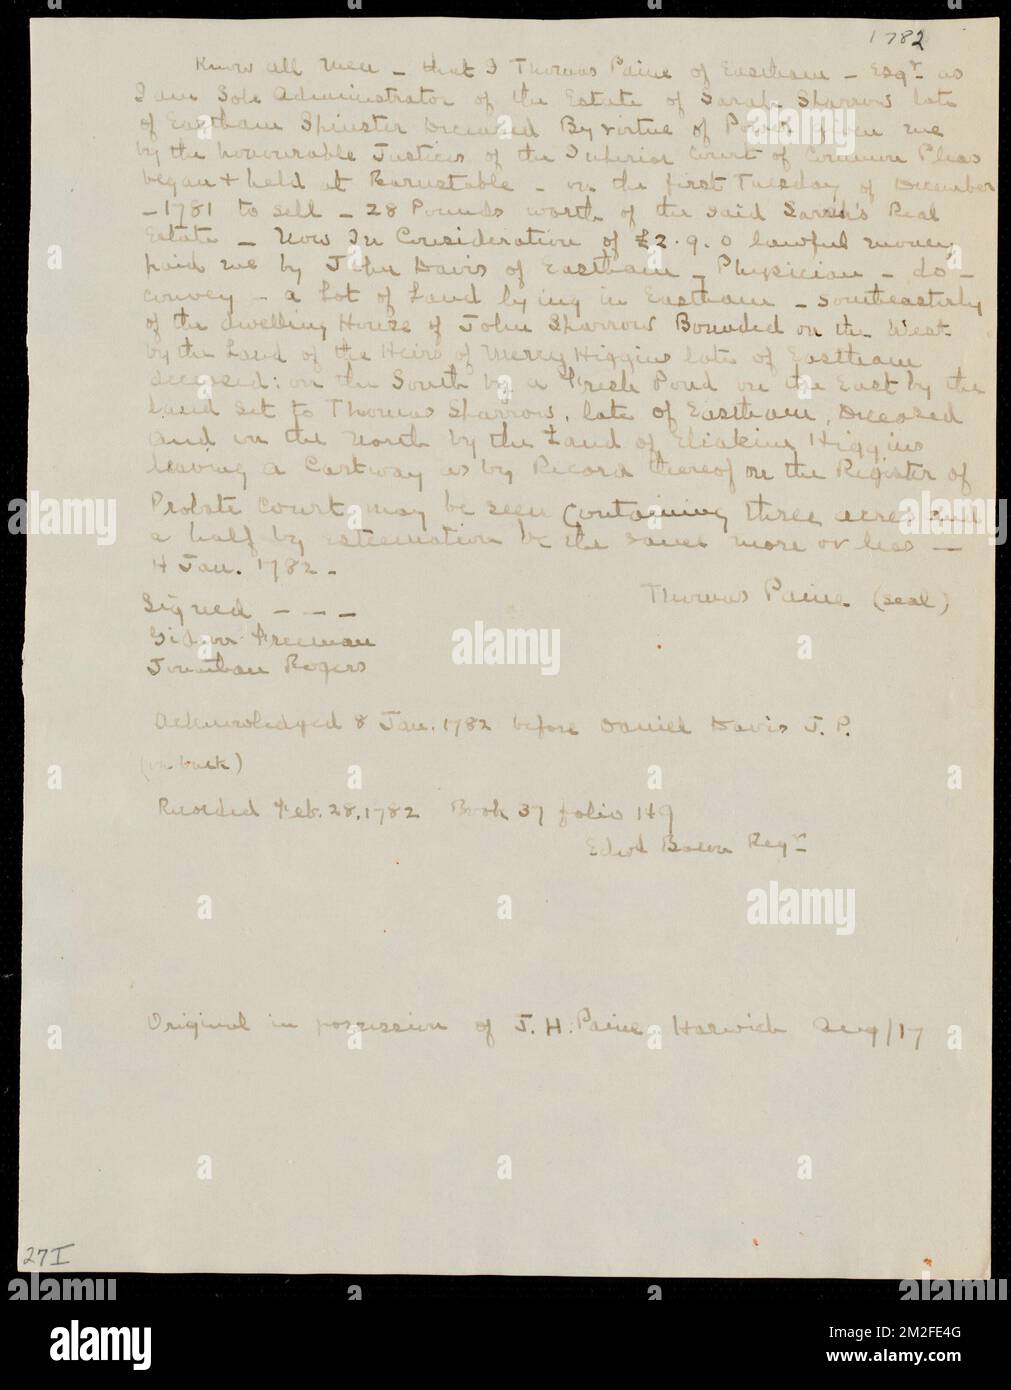 1782
Know all Men – that I Thomas Paine of Eastham – Esqr as
I am Sole Administrator of the Estate of Sarah Sparrow late
of Eastham Spinster Deceased By virtue of Power given me
by the honourable Justices of the Inferior Court of Common Pleas
began & held at Barnstable – on the first Tuesday of December
– 1781 to sell – 28 Pounds worth of the said Sarah's Real
Estate – Now In Consideration of £2. 9. 0 lawful money
paid me by John Davis of Eastham – Physician – do –
convey – a Lot of Land lying in Eastham – southeasterly
of the dwelling House of John Sparrow Bounded on the West
by the Land of the Heirs of Mercy Higgins late of Eastham
deceased: on the South by a Fresh Pond on the East by the
Land set to Thomas Sparrow, late of Eastham, Deceased
and on the North by the Land of Eliakim Higgins
leaving a Cartway as by Record thereof on the Register of
Probate Court may be seen Containing three acres and
a half by estemation be the same more or less —
4 Jan. 1782 –
Thomas Paine (seal)
Signed – – –
Freeman
Jonathan Rogers
Acknowledged 8 Jan. 1782 before Daniel Davis J. P.
(on back)
Recorded Feb. 28, 1782 Book 37 folio 149
Edwd Bacon Regr
Original in possession of J. H. Paine Harwich Aug/17
27I
alamy
Image ID: 2M2FE4G
www.alamy.com